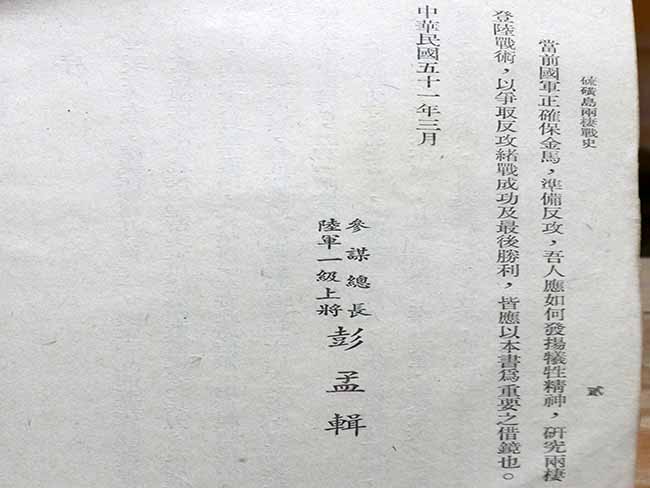 硫磺島兩棲戰史
貳
當前國軍正確保金馬，準備反攻，吾人應如何發揚犧牲精神，研究兩棲
登陸戰術，以爭取反攻緒戰成功及最後勝利，皆應以本書為重要之借鏡也。
中華民國五十一年三月
參謀總長
陸軍一級上將
彭孟輯